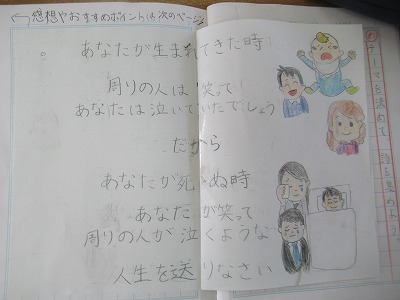 感想やおすすめポイントは次のページ
あなたが生まれてきた時
周りの人は笑って
あなたは泣いていたでしょう
だから
あなたが死ぬ時
あなたが笑って
周りの人が泣くような
人生を送りなさい
テーマを決めて